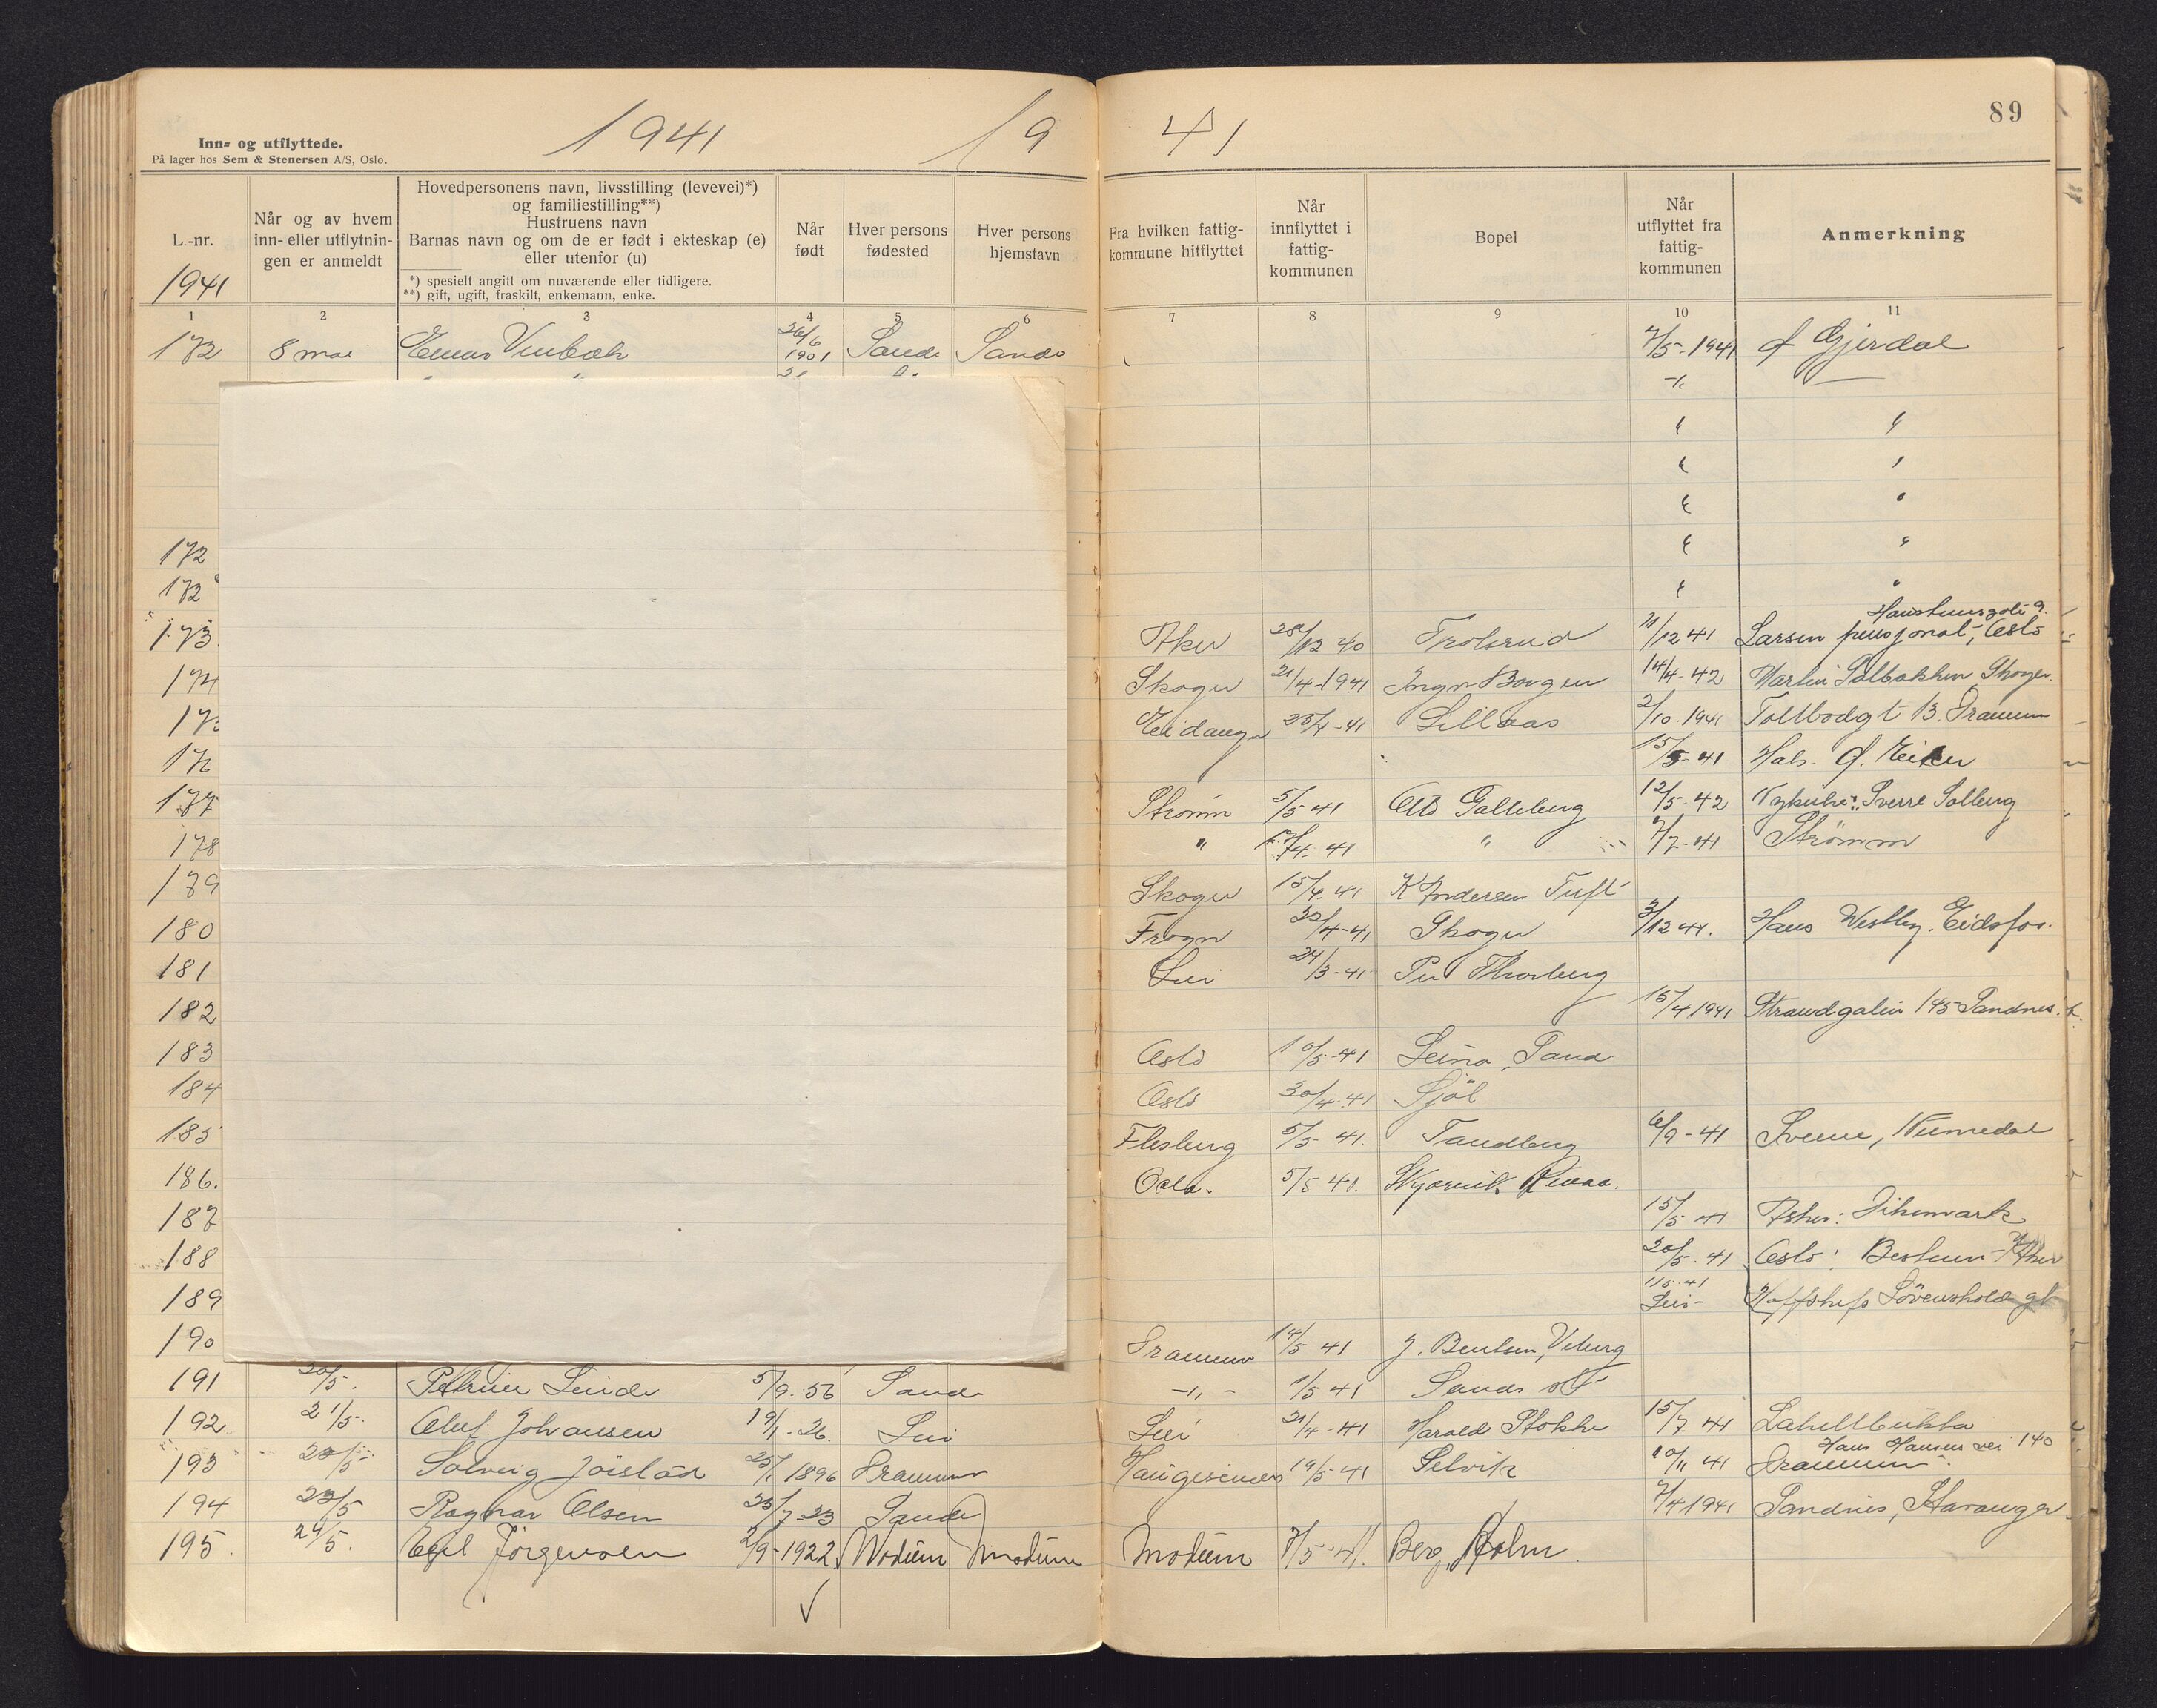 1941 19 41
89
Inn- og utflyttede.
På lager hos Sem & Stenersen A/S, Oslo.
L.-nr.
1941
Når og av hvem
inn- eller utflytnin-
gen er anmeldt
Hovedpersonens navn, livsstilling (levevei)*)
og familiestilling**)
Hustruens navn
Barnas navn og om de er født i ekteskap (e)
eller utenfor (u)
*) spesielt angitt om nuværende eller tidligere.
**) gift, ugift, fraskilt, enkemann, enke.
Når
født
Hver persons
fødested
Hver persons
hjemstavn
Fra hvilken fattig-
kommune hitflyttet
Når
innflyttet i
fattig-
kommunen
Bopel
Når
utflyttet fra
fattig-
kommunen
Anmerkning
1 2 3 4 5 6 7 8 9 10 11
172 8 mai Einar 26/6 1901 Sande Sande 7/5-1941 Gjerdal
172
172
173 Aker 28/12 40 Trolsrud 11/12 41 Larsen pensjonat, Oslo
174 Skoger 21/4-1941 Borgen 14/4-42 Martin Solbakken Skoger.
Eidanger 25/4-41 Lillaas 2/10.1941 Tollbodgt 13. Drammen
15/5-41 Hals. Eiker
177 Strømm 5/5 41 Galleberg 12/5-42 Sverre Solberg
178 " /4-41 " 7/7-41 Strømm
179 Skoger 15/4-41 K Andersen Tuft
180 Frogn 22/4-41 Skoger 3/12 41. Hans Westby. Eidsfos.
181 Lier 24/3-41 Per Thorberg
182 15/4 1941 Strandgaten 145 Sandnes.
183 Oslo 10/5-41 Leina, Sand
184 Oslo 30/4.41 Sjøl
185 Flesberg 5/5-41. Tandberg 6/9-41 Svene, Numedal
186. Oslo. 5/5 41.
187 15/5-41 Asker: Dikemark
188 20/5.41 Oslo: Bestum - Aker
189 115.41 Lier- Løvenskolds gt
190 Drammen 14/5 41 J. Bentsen, Veberg
191 20/5. Petrine Linde 5/9-56 Sande -"- 1/5 41 Sande
192 21/5. Oluf Johansen 19/1-26. Lier Lier 21/4-41 Harald Stokke 15/7.41 Lahellbukta
193 Solveig 1896 Drammen 19/5-41 Selvik 10/11 41 Hans Hansens vei 140
Drammen.
194 23/5 Ragnar Olsen 23/7-23 Sande 7/4 1941 Sandnes, Stavanger
195. 24/5. Egil Jörgensen 2/9-1922. Modum Modum Modum 7/5-41. Berg, Holm.